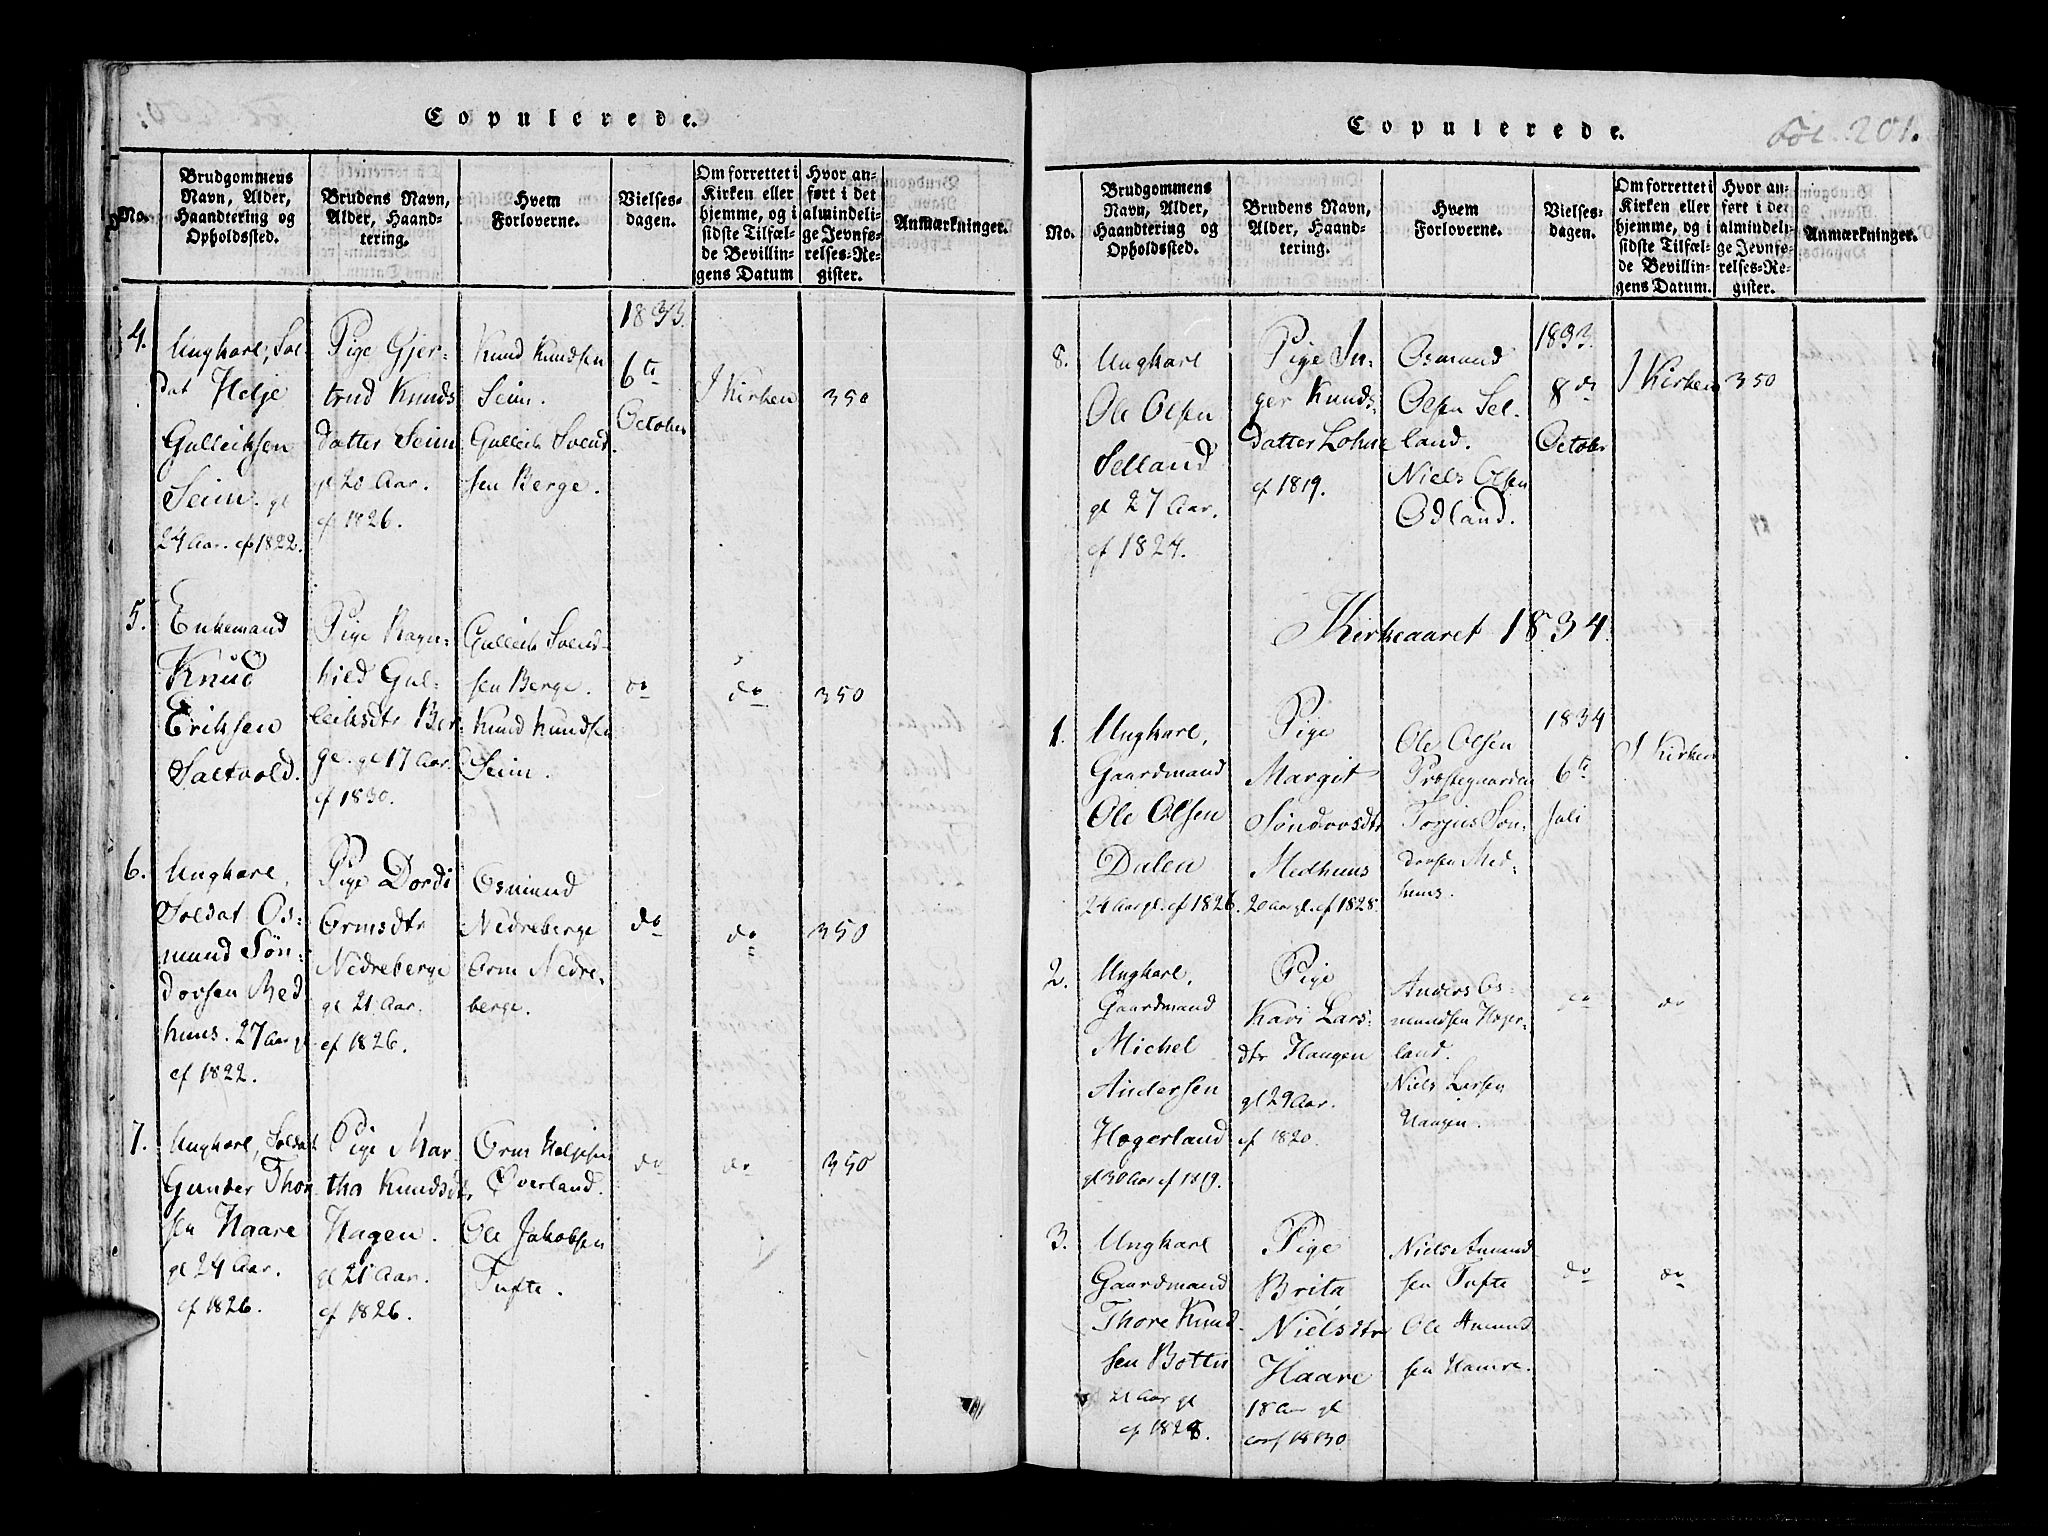 Copulerede.
No.
Brudgommens
Navn, Alder,
Haandtering og
Opholdssted.
Brudens Navn,
Alder, Haand-
tering.
Hvem
Forloverne.
Vielses-
dagen.
Om forrettet i
Kirken eller
hjemme, og i
sidste Tilfæl-
de Bevillin-
gens Datum
Hvor an-
ført i det
almindeli-
ge Jevnfø-
relses-Re-
gister.
Anmærkninger.
4.
Ungkarl, Sol-
dat Helje
Gulleiksen
Seim. gl
24 Aar. cf 1822.
Pige Gjer-
trud Knuds
datter Seim
gl 20 Aar.
cf 1826.
Knud Knudsen
Seim.
Gulleik Svend
sen Berge.
1833.
6te
October
I Kirken
350
5.
Enkemand
Knud
Eriksen
Saltvold.
Pige Ragn-
hild Gul-
leiksdtr Ber-
ge. gl 17 Aar.
cf 1830.
Gulleik Svend-
sen Berge.
Knud Knudsen
Seim.
do
do
350
6.
Ungkarl,
Soldat Os-
mund Søn-
dovsen Med
huus. 27 Aar gl
cf 1822.
Pige Dordi
Ormsdtr
Nedreberge
gl 21 Aar.
cf 1826.
Osmund
Nedreberge
Orm Nedre-
berge.
do
do
350
7.
Ungkarl, Soldat
Gunder Thor
sen Haare
gl 24 Aar.
cf 1826.
Pige Mar-
tha Knudsdtr
Hagen.
gl 21 Aar.
cf 1826.
Orm Heljesen
Øverland.
Ole Jakobsen
Tufte.
do
do
350
Copulerede.
Fol. 201.
No.
Brudgommens
Navn, Alder,
Haandtering og
Opholdssted.
Brudens Navn,
Alder, Haand-
tering.
Hvem
Forloverne.
Vielses-
dagen.
Om forrettet i
Kirken eller
hjemme, og i
sidste Tilfæl-
de Bevillin-
gens Datum.
Hvor an-
ført i det
almindeli-
ge Jevnfø-
relses-Re-
gister.
Anmærkninger.
8.
Ungkarl
Ole Olsen
Selland
gl 27 Aar.
cf 1824.
Pige In-
ger Knuds-
datter Lohne
cf 1819.
Osmund
Olsen Sel-
land.
Niels Olsen
Odland.
1833.
8de
October
I Kirken
350
Kirkeaaret 1834.
1.
Ungkarl,
Gaardmand
Ole Olsen
Dalen
24 Aar gl. cf 1826.
Pige
Margit
Søndovsdtr
Medhuus
20 Aar gl. cf 1828.
Ole Olsen
Præstegaarden
Torjus Søn-
dovsen Med-
huus.
1834
6te
Juli
I Kirken
2.
Ungkarl,
Gaardmand
Michel
Andersen
Hægerland
gl 30 Aar cf 1819.
Pige
Kari Lars-
dtr Haugen
gl 29 Aar.
cf 1820.
Anders Os-
mundsen Hæger-
land.
Niels Larsen
Haugen.
do
do
3.
Ungkarl
Gaardmand
Thore Knud-
sen Botten
21 Aar gl
cf 1828.
Pige
Brita
Nielsdtr
Haare
18 Aar gl
conf 1830
Niels Amund
sen Tufte
Ole Amund
sen Hamre.
do
do